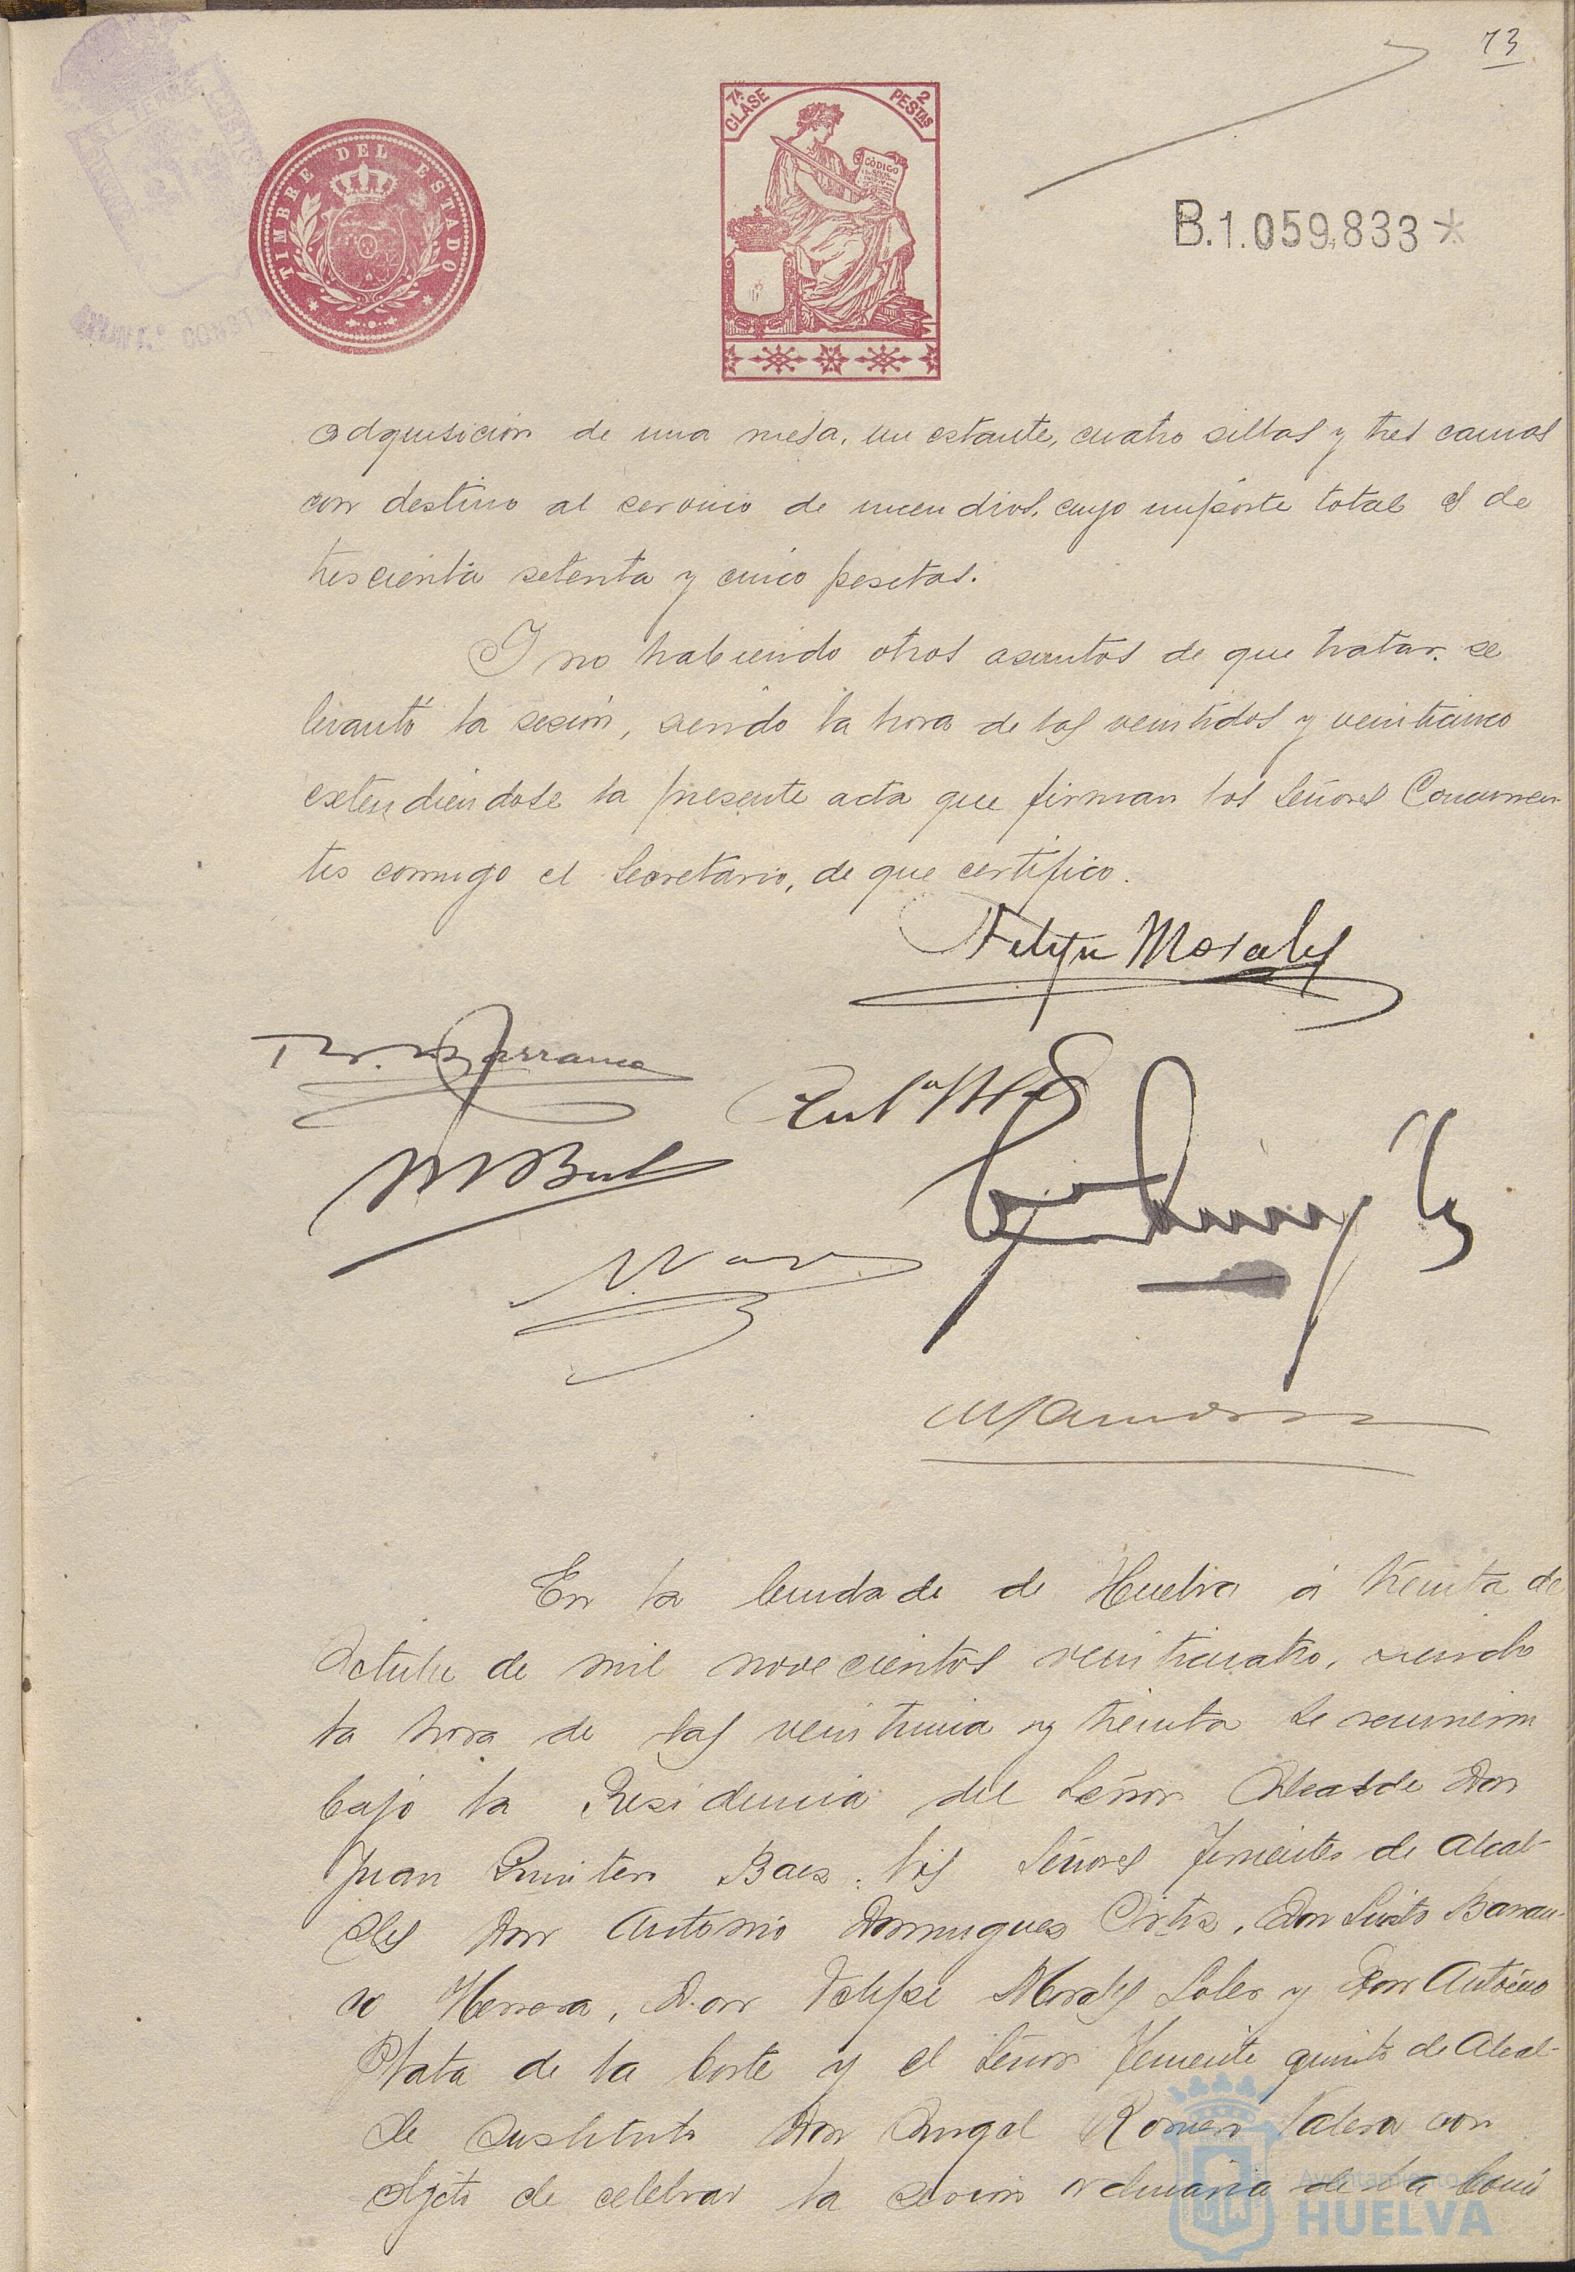 73
7ª CLASE
2 PESTAS
CODIGO
TIMBRE DEL ESTADO
B.1.059,833*
adquisición de una mesa, un estante, cuatro sillas y tres camas
con destino al servicio de incendios, cuyo importe total es de
trescienta setenta y cinco pesetas.
Y no habiendo otros asuntos de que tratar, se
levantó la sesión, siendo la hora de las veintidos y veinticinco
extendiendose la presente acta que firman los Señores Concurren-
tes conmigo el Secretario, de que certifico.
Felipe Morales
Barranco
En la Ciudad de de Huelva á treinta de
Octubre de mil novecientos veinticuatro, siendo
la hora de las veintiuna y treinta se reunieron
bajo la Presidencia del Señor Alcalde Don
Juan Quintero Baez, los Señores Tenientes de Alcal-
des Don Antonio Dominguez Ortiz, Don Sixto Barran-
co Herrera, Don Felipe Morales Soler y Don Antonio
Plata de la Corte y el Señor Teniente quinto de Alcal-
de sustituto Don Angel Romero Valera con
objeto de celebrar la sesión ordinaria de la Comi
Ayuntamiento de
HUELVA